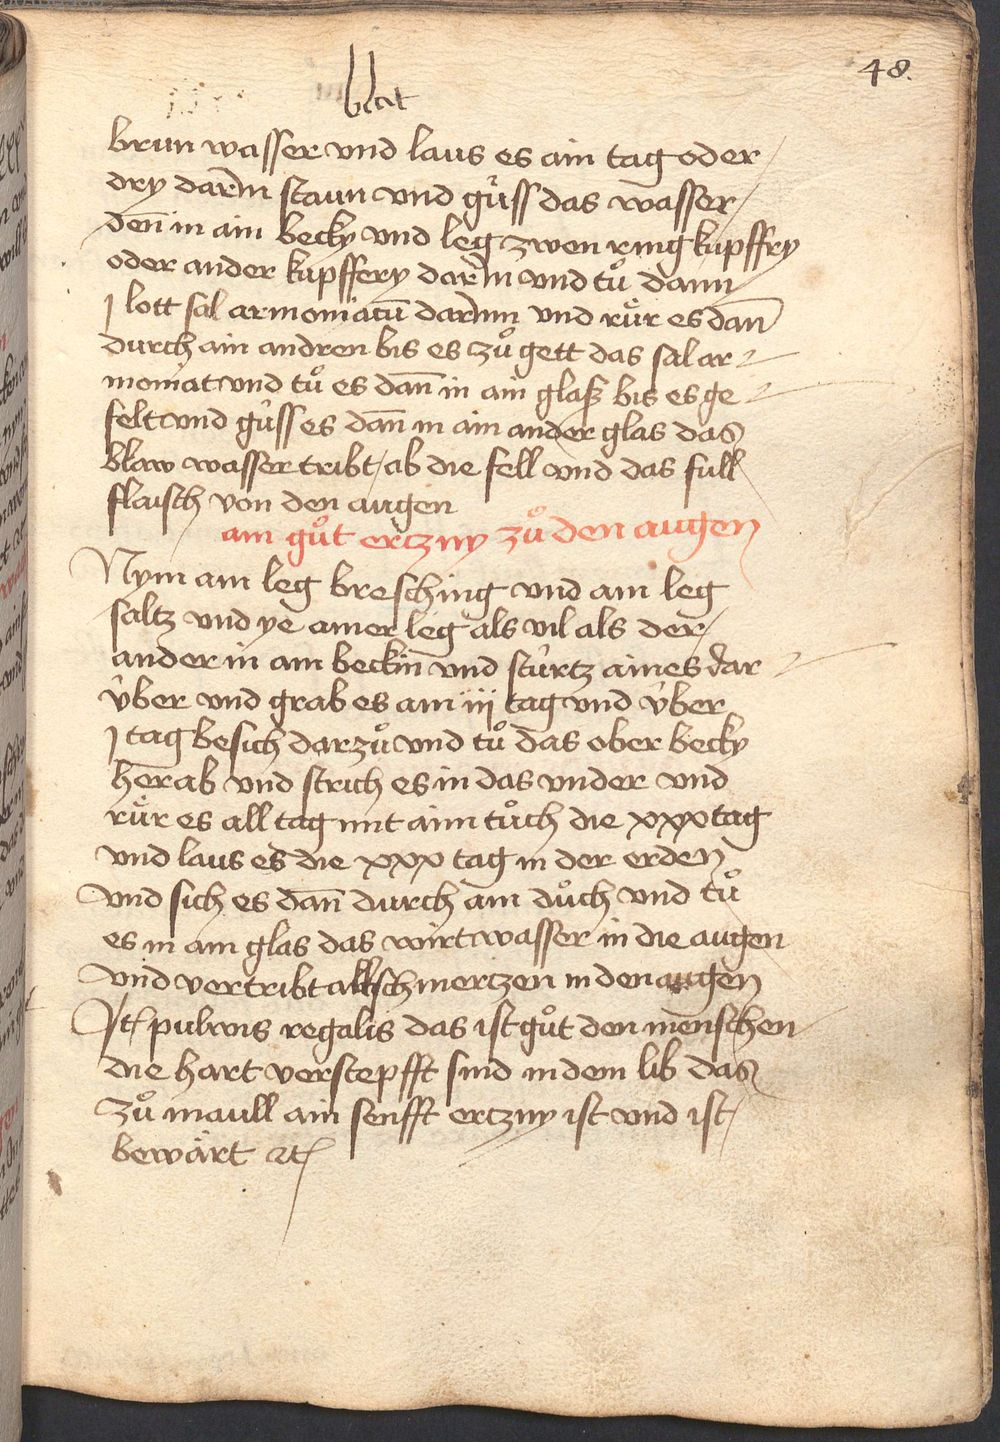 48.
blat
brun wasser vnd laus es ain tag oder
dry darin staun vnd gúss das wasser
den̄ in ain becky vnd leg zwen ring kupffry
oder ander kupffery darin vnd tů dann
j lott sal armoniacū darinn vnd rür es dan̄
durch ain andren bis es zů gett das sal ar-
moniat vnd tů es dan̄ in ain glaß bis es ge-
felt vnd gúss es dan̄ in ain ander glas das
blaw wasser tribt ab die fell vnd das full
flaisch von den augen
ain gůt ertzny zů den augen
Nym ain leg bresching vnd ain leg
saltz vnd ye ainer leg als vil als der
ander in ain beckin vnd stúrtz aines dar-
úber vnd grab es ain iij tag vnd úber
j tag besich darzů vnd tů das ober becky
herab vnd strich es in das vnder vnd
rür es all tag mit aim tůch die xxx tag
vnd laus es die xxx tag in der erden
vnd sich es dan̄ durch ain důch vnd tů
es in ain glas das wirt wasser in die augen
vnd vertribt all schmertzen in den augen
Jt̄ pulvis regalis das ist gůt den menschen
die hart verstepfft sind in dem lib das
zů maull ain senfft ertzny ist vnd ist
bewärt ꝛc